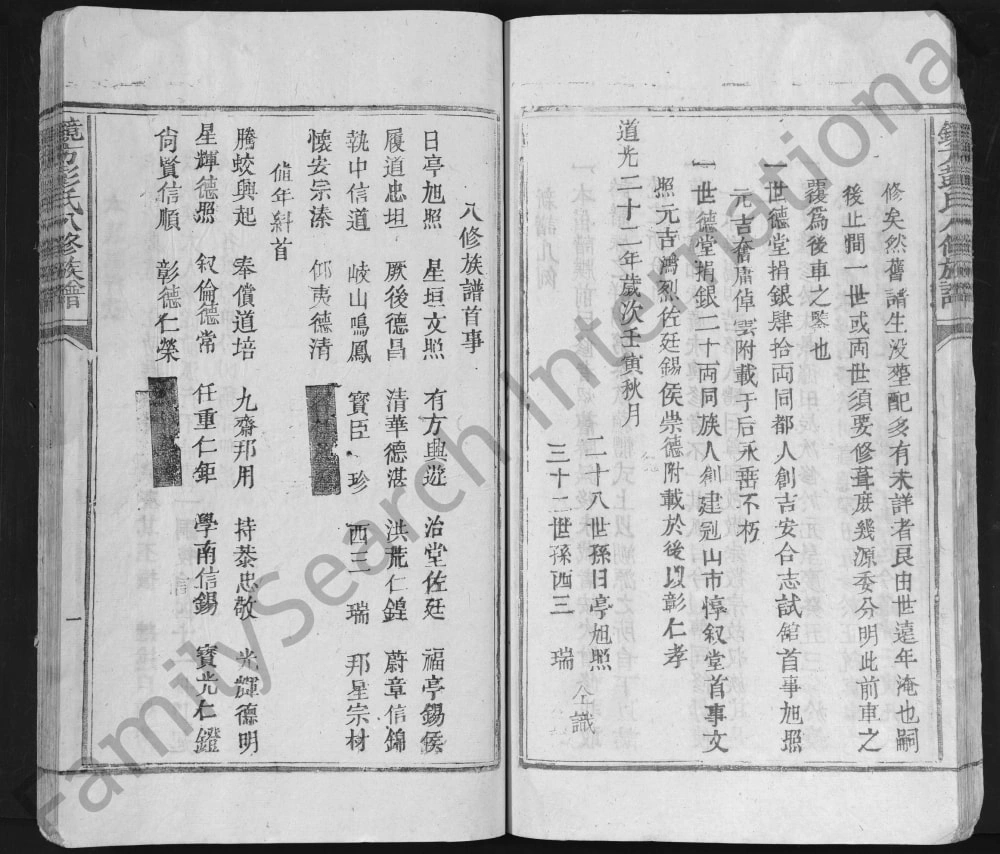 修矣然舊譜生没塟配多有未詳者良由世遠年淹也嗣
後止間一世或両世須要修葺庶幾源委分明此前車之
覆爲後車之鑒也
一世德堂捐銀肆拾両同都人創吉安合志試館首事旭照
元吉奮庸倬雲附載于后永垂不朽
一世德堂捐銀二十両同族人創建冠山市惇叙堂首事文
照元吉鴻烈佐廷錫侯崇德附載於後以彰仁孝
道光二十二年歲次壬寅秋月
二十八世孫日亭旭照
三十二世孫西三 瑞 仝識
鏡方彭氏八修族譜
八修族譜首事
日亭旭照 星垣文照 有方興遊 治堂佐廷 福亭錫侯
履道忠坦 厥後德昌 清華德湛 洪荒仁鍠 蔚章信錦
執中信道 岐山鳴鳳 寳臣 珍 西三 瑞 邦星宗材
懷安宗溱 仰夷德清
值年糾首
騰蛟興起 奉償道培 九齋邦用 持泰忠敬 光輝德明
星輝德照 叙倫德常 任重仁鉅 學南信錫 寳光仁鐙
尙賢信順 彰德仁榮
鏡方彭氏八修族譜
一
FamilySearch International